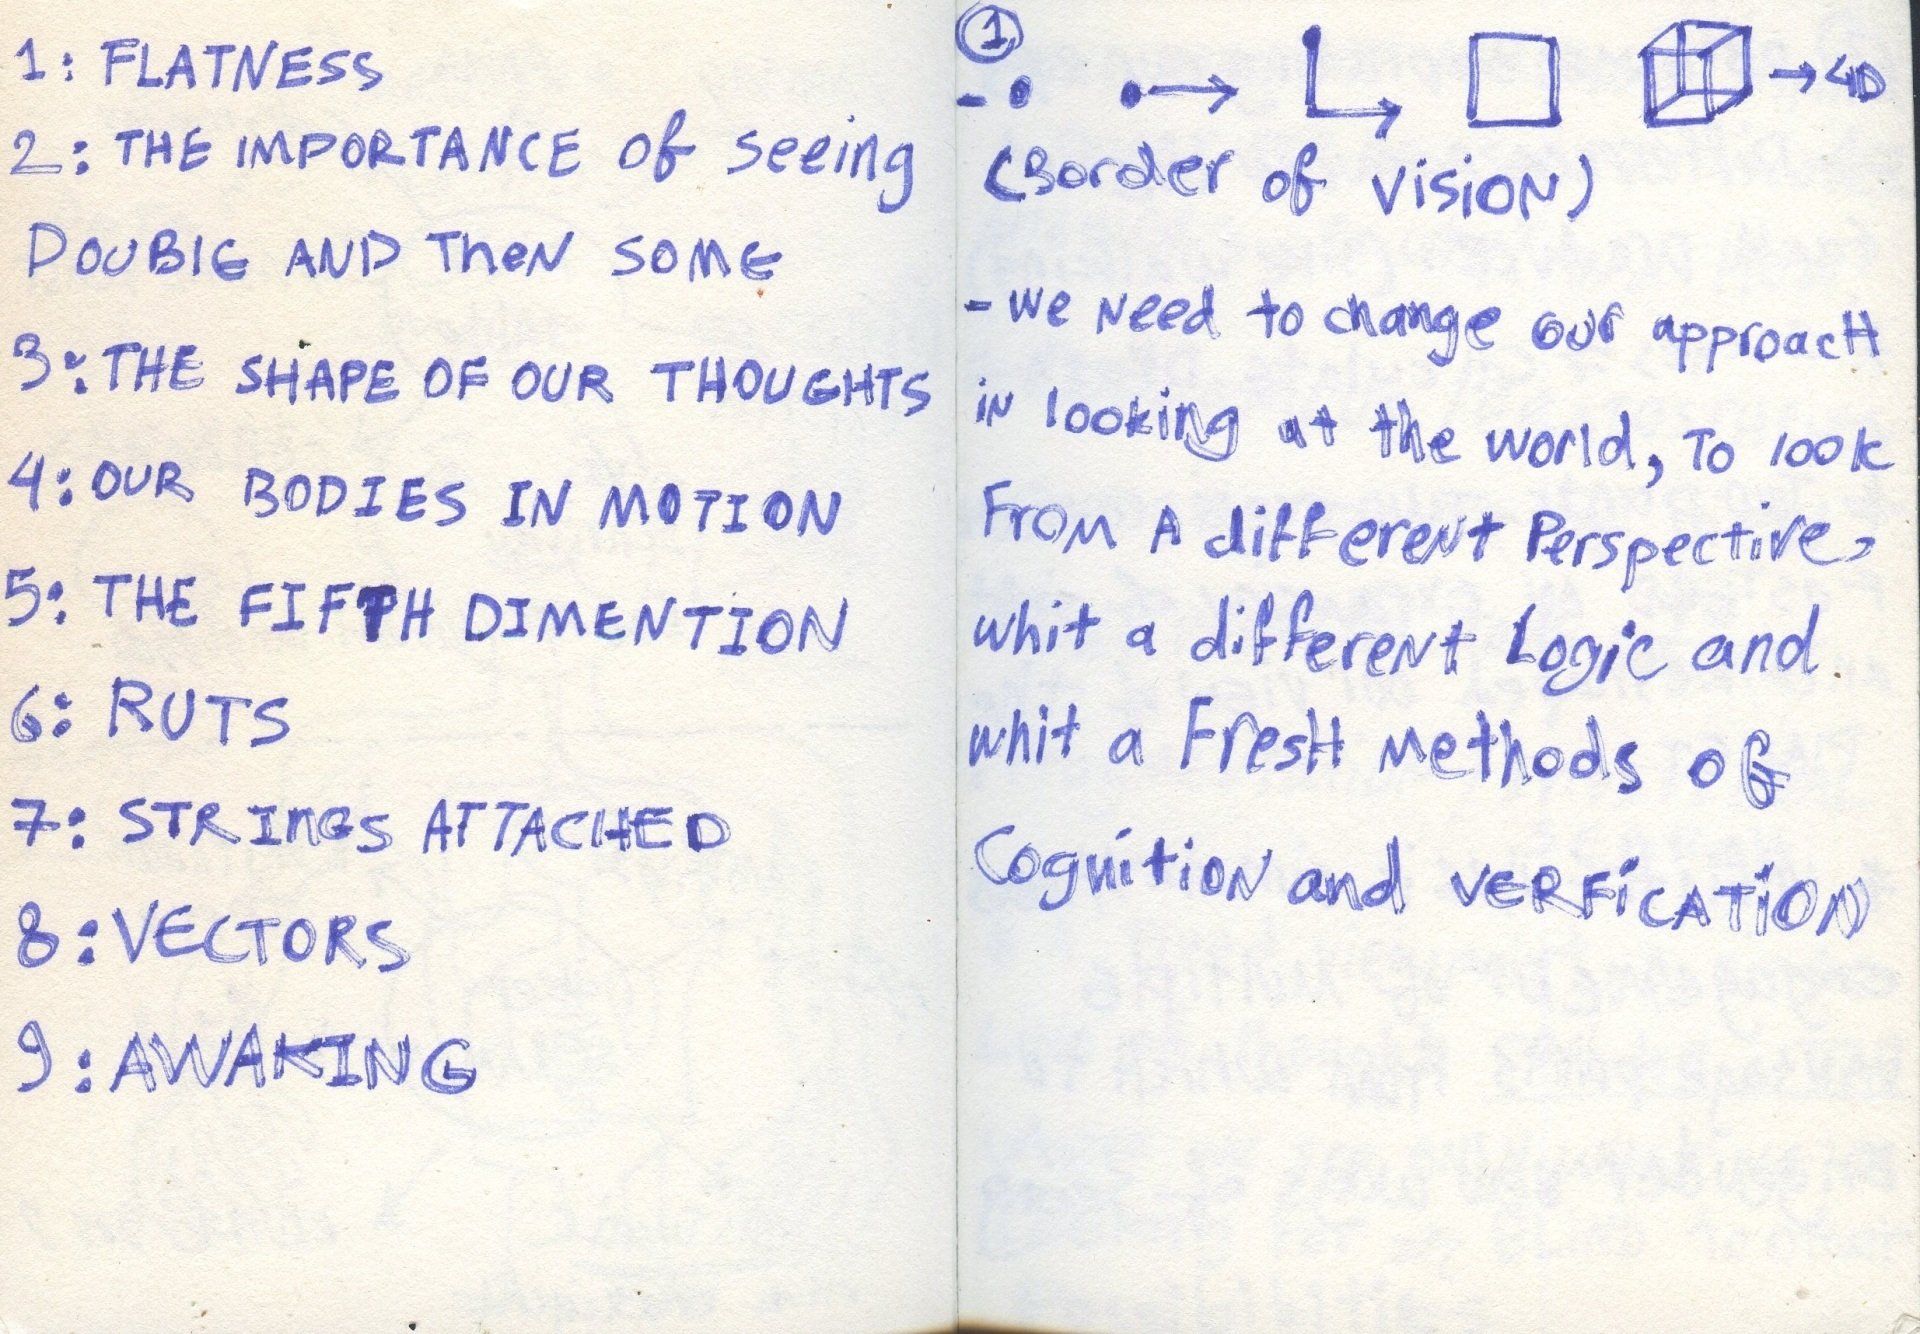 1: FLATNESS
2: THE IMPORTANCE of seeing
DOUBlE AND TheN SOME
3: THE SHAPE OF OUR THOUGHTS
4: OUR BODIES IN MOTION
5: THE FIFTH DIMENTION
6: RUTS
7: STRINGS ATTACHED
8: VECTORS
9: AWAKING
1
→ 4D
(Border of VISION)
- We Need to change our approacH
in looking at the world, To look
From A different Perspective,
whit a different Logic and
whit a FresH Methods of
Cognition and VERFiCATiON